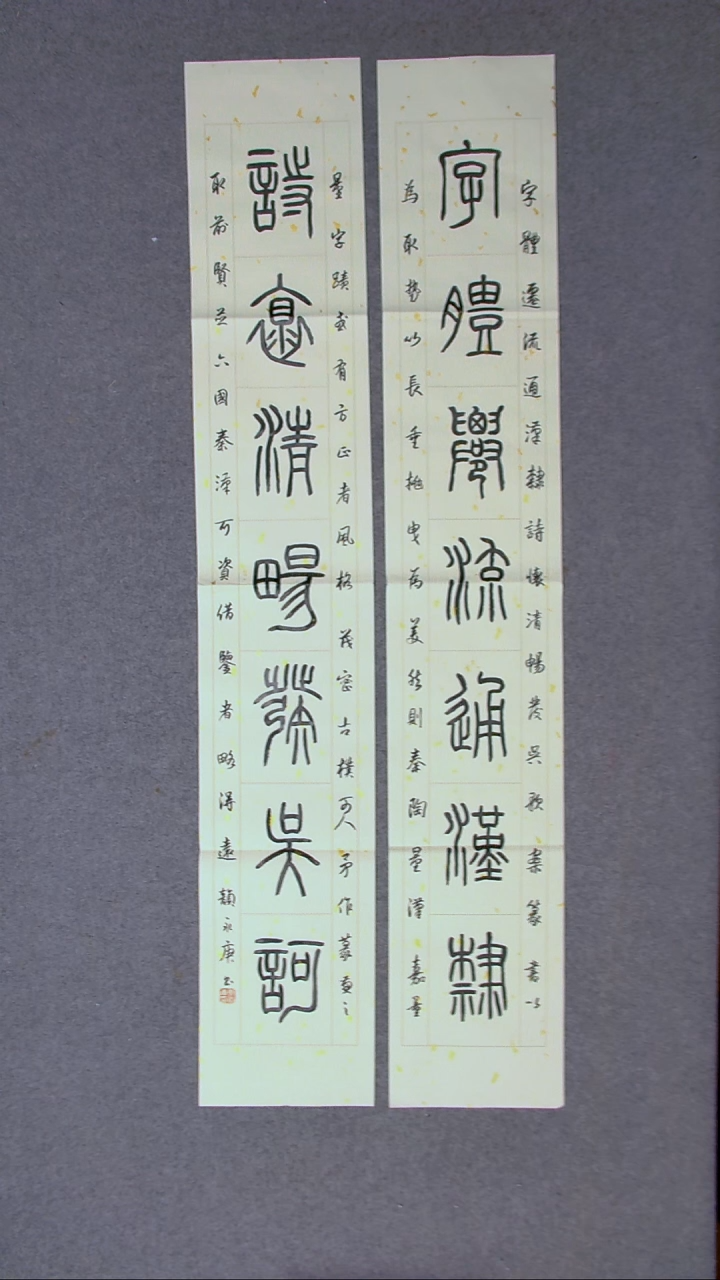 字體遷流通漢隸
字體遷流通漢隸詩懷清暢發吳歌案篆書
為取勢以長垂拖曳為美然則秦陶量漢嘉量
詩懷清暢發吳歌
量字蹟或有方正者風格茂密古樸可人予作篆
取前賢並六國秦漢可資借鑒者略得遠 永庚